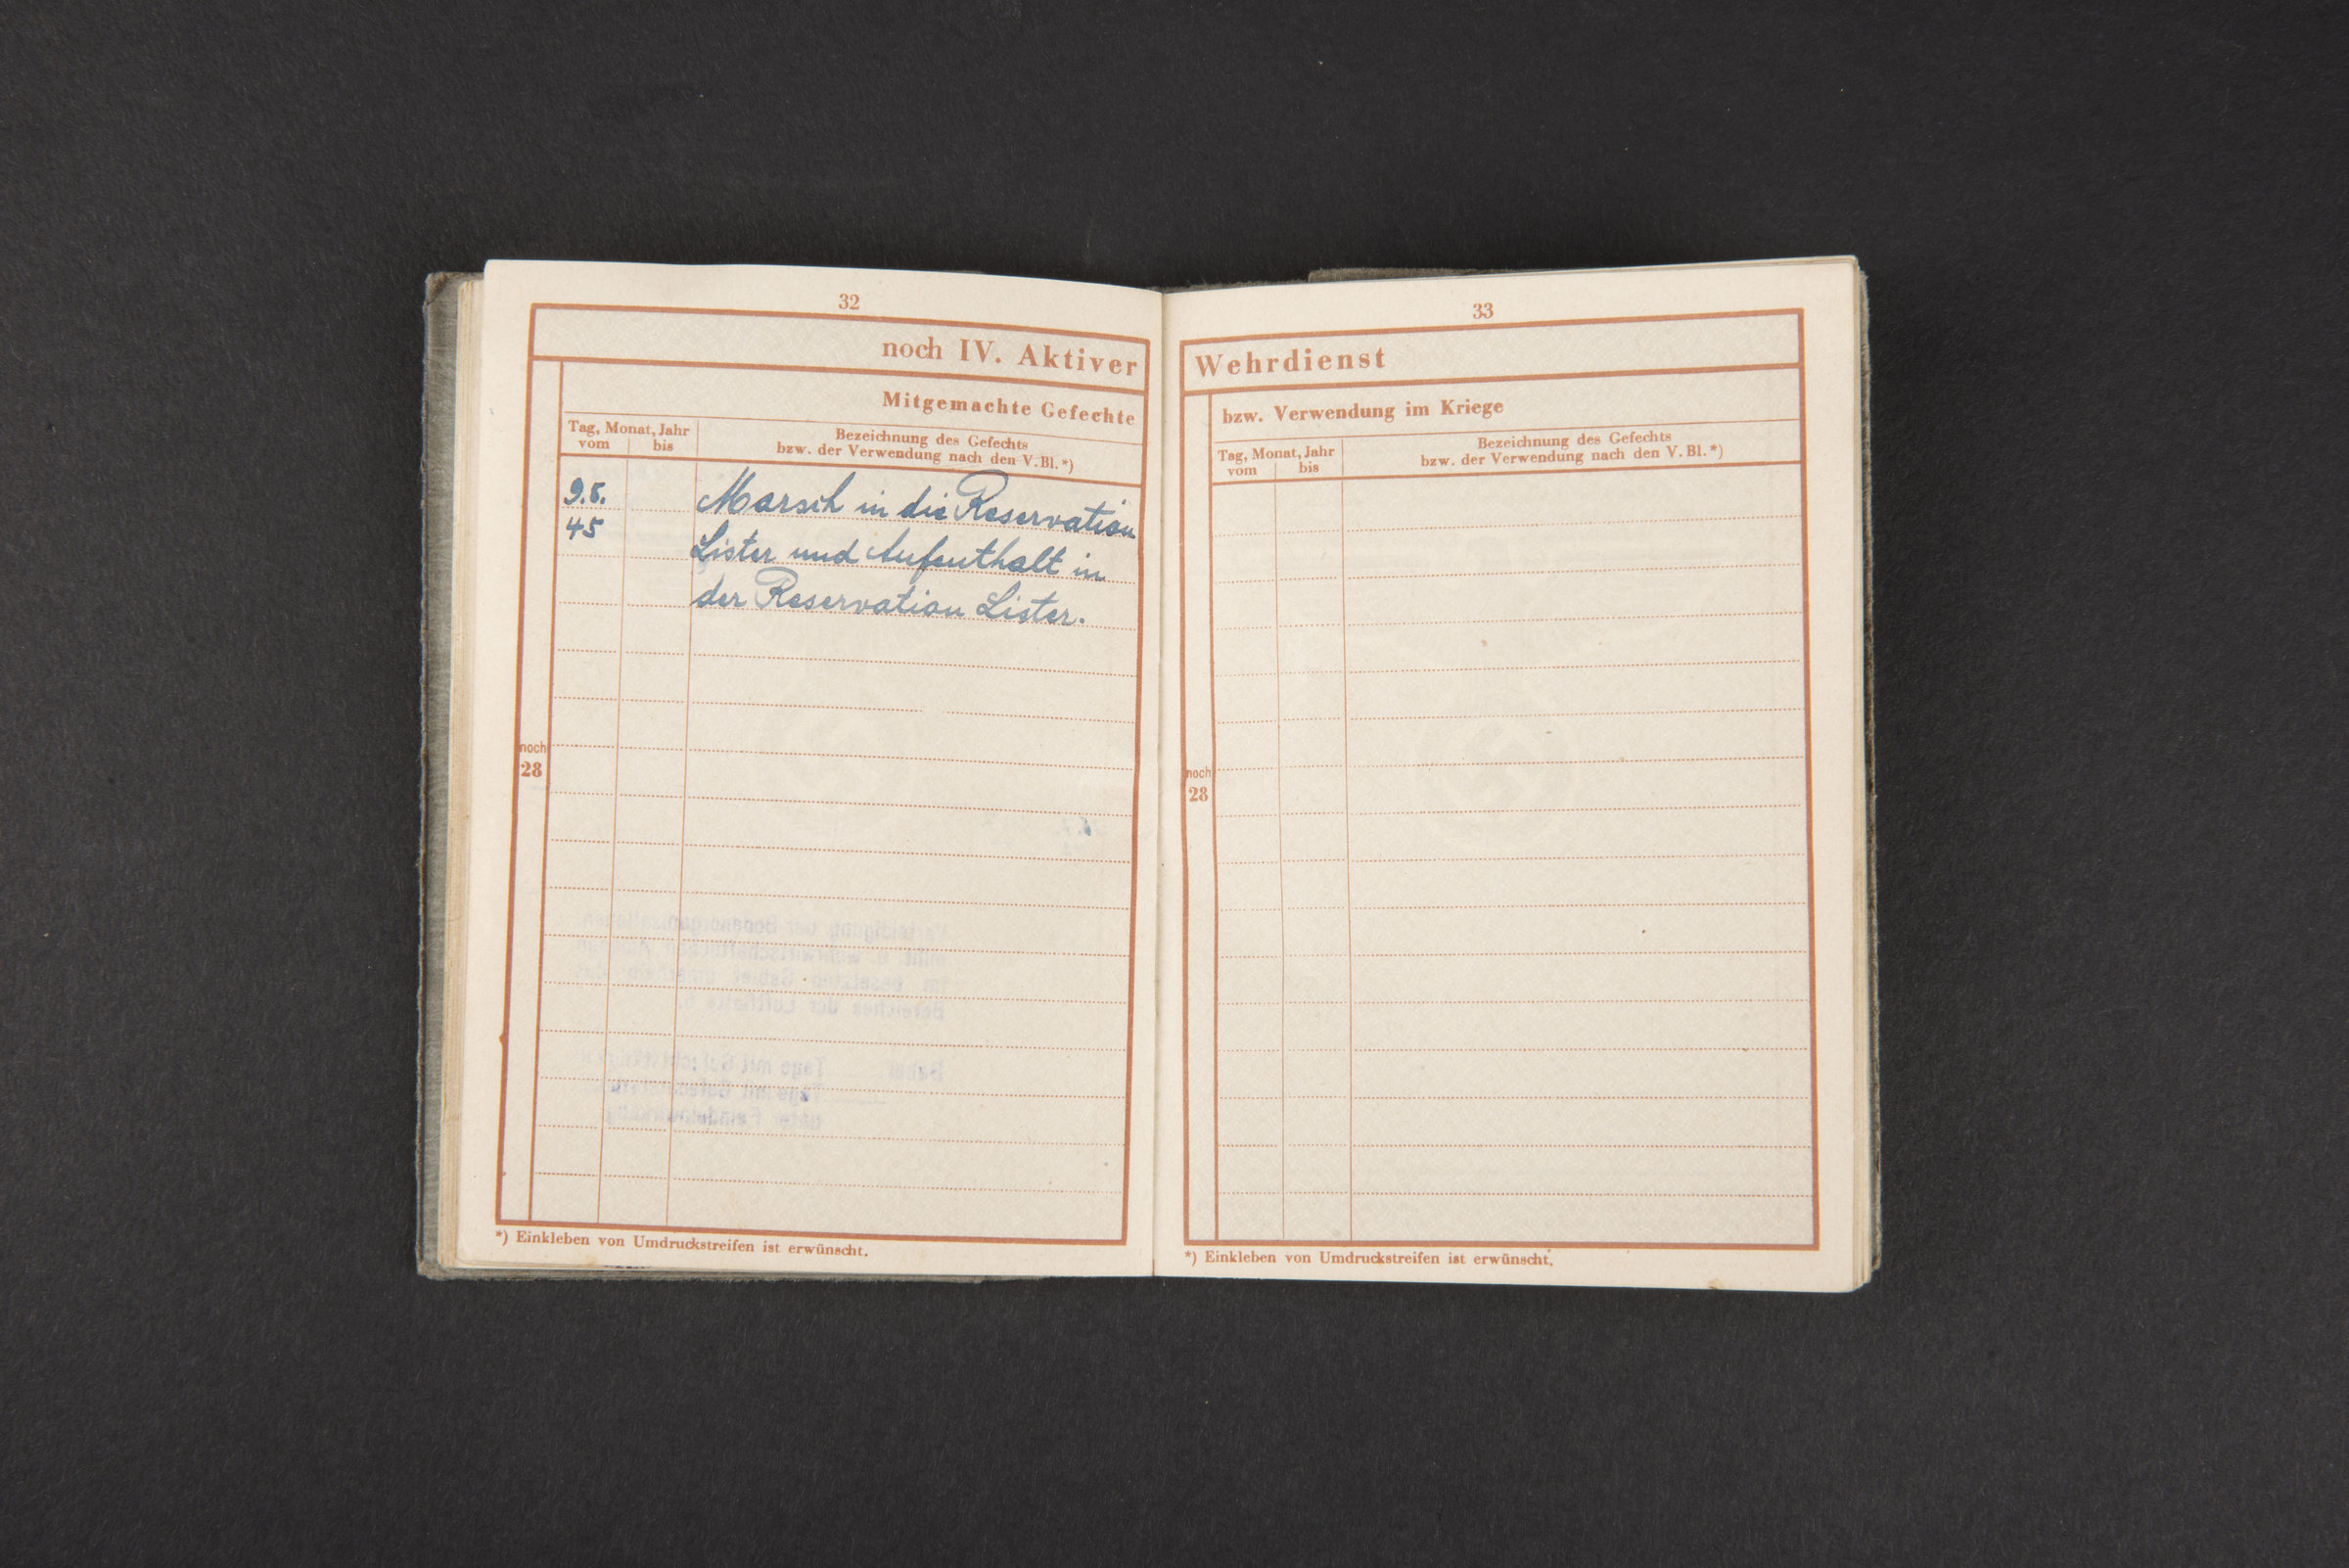 32
noch IV. Aktiver
Mitgemachte Gefechte
Tag, Monat, Jahr
vom bis
Bezeichnung des Gefechts
bzw. der Verwendung nach den V. Bl. *)
9.5.
45
Marsch in die Reservation
Lister und Aufenthalt in
der Reservation Lister.
noch
28
*) Einkleben von Umdruckstreifen ist erwünscht.
33
Wehrdienst
bzw. Verwendung im Kriege
Tag, Monat, Jahr
vom bis
Bezeichnung des Gefechts
bzw. der Verwendung nach den V. Bl. *)
noch
28
*) Einkleben von Umdruckstreifen ist erwünscht.